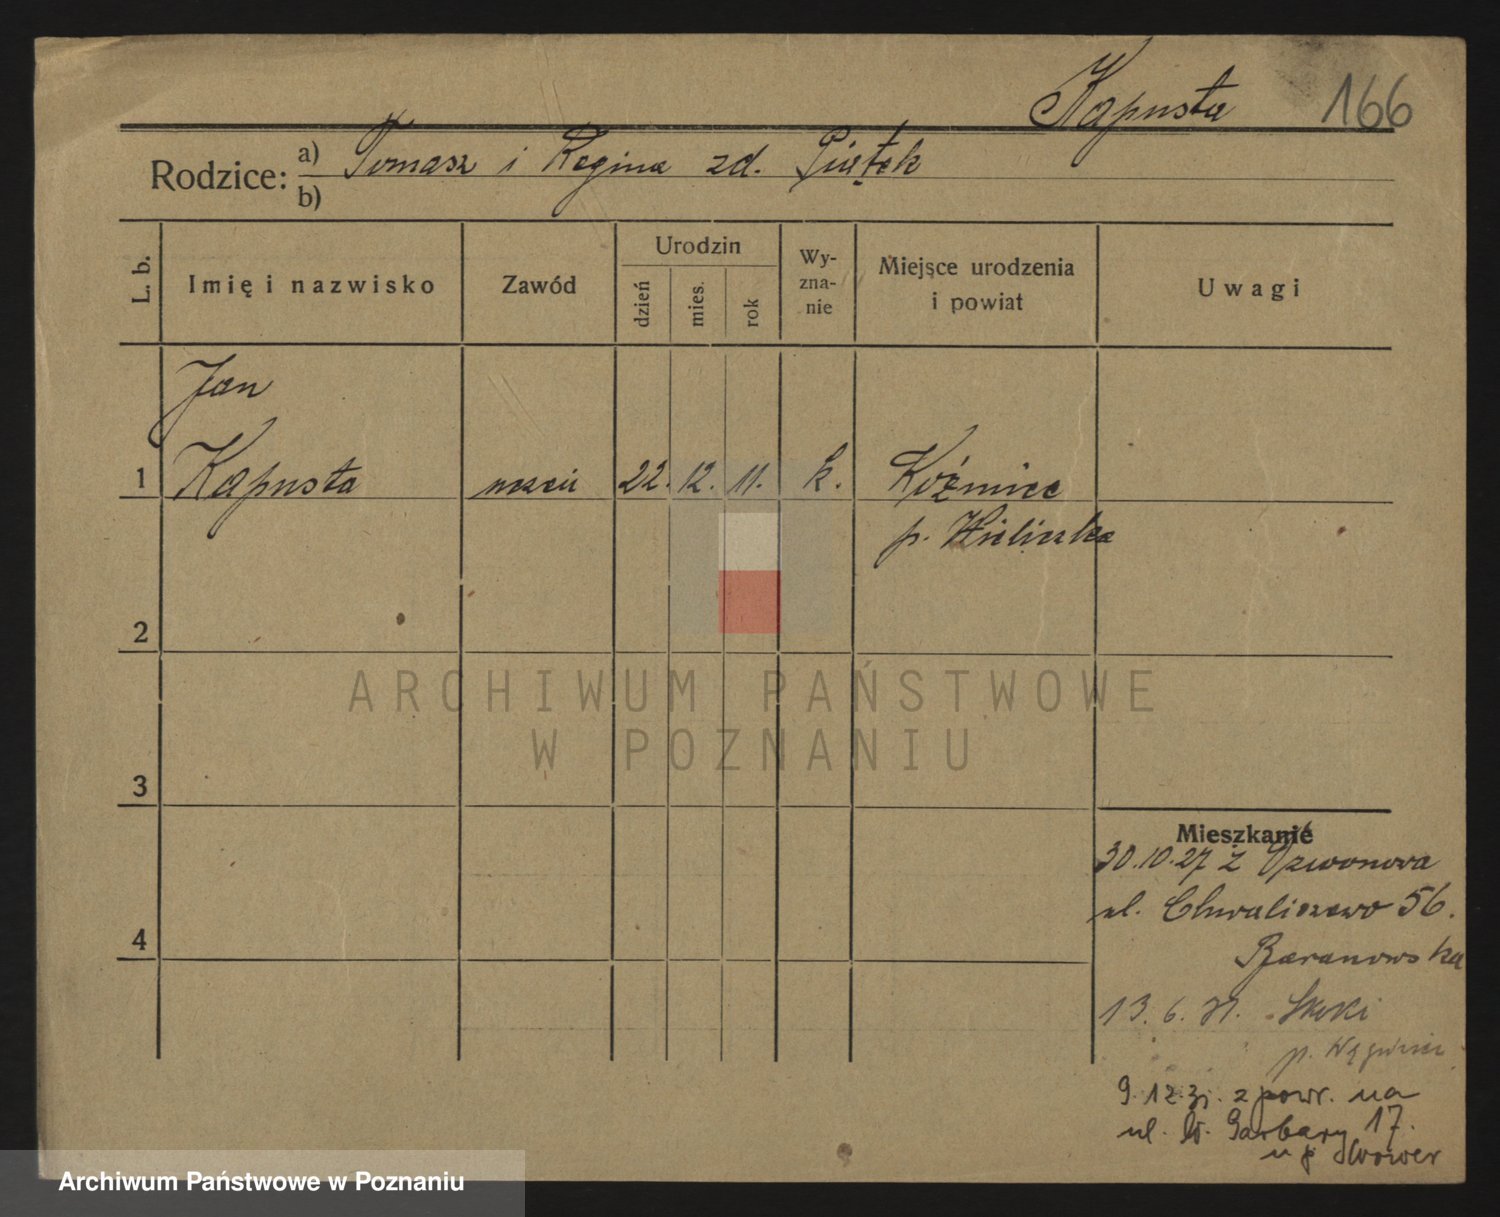 Kapusta 166
Rodzice: a) Tomasz i Regina zd. Piątek
b)
L. b.
Imię i nazwisko
Zawód
Urodzin
dzień
mies.
rok
Wy-
zna-
nie
Miejsce urodzenia
i powiat
Uwagi
Jan
1 Kapusta uczeń 22. 12. 11. k. Koźmice
p. Wieliczka
2
3
4
Mieszkanie
30.10.27 z Dzwonowa
ul. Chwaliszewo 56.
Baranowska
13. 6. 31. Skoki
p. Wągrowiec
9.12.31. z powr. na
ul. W. Garbary 17.
u p.
ARCHIWUM PAŃSTWOWE
W POZNANIU
Archiwum Państwowe w Poznaniu